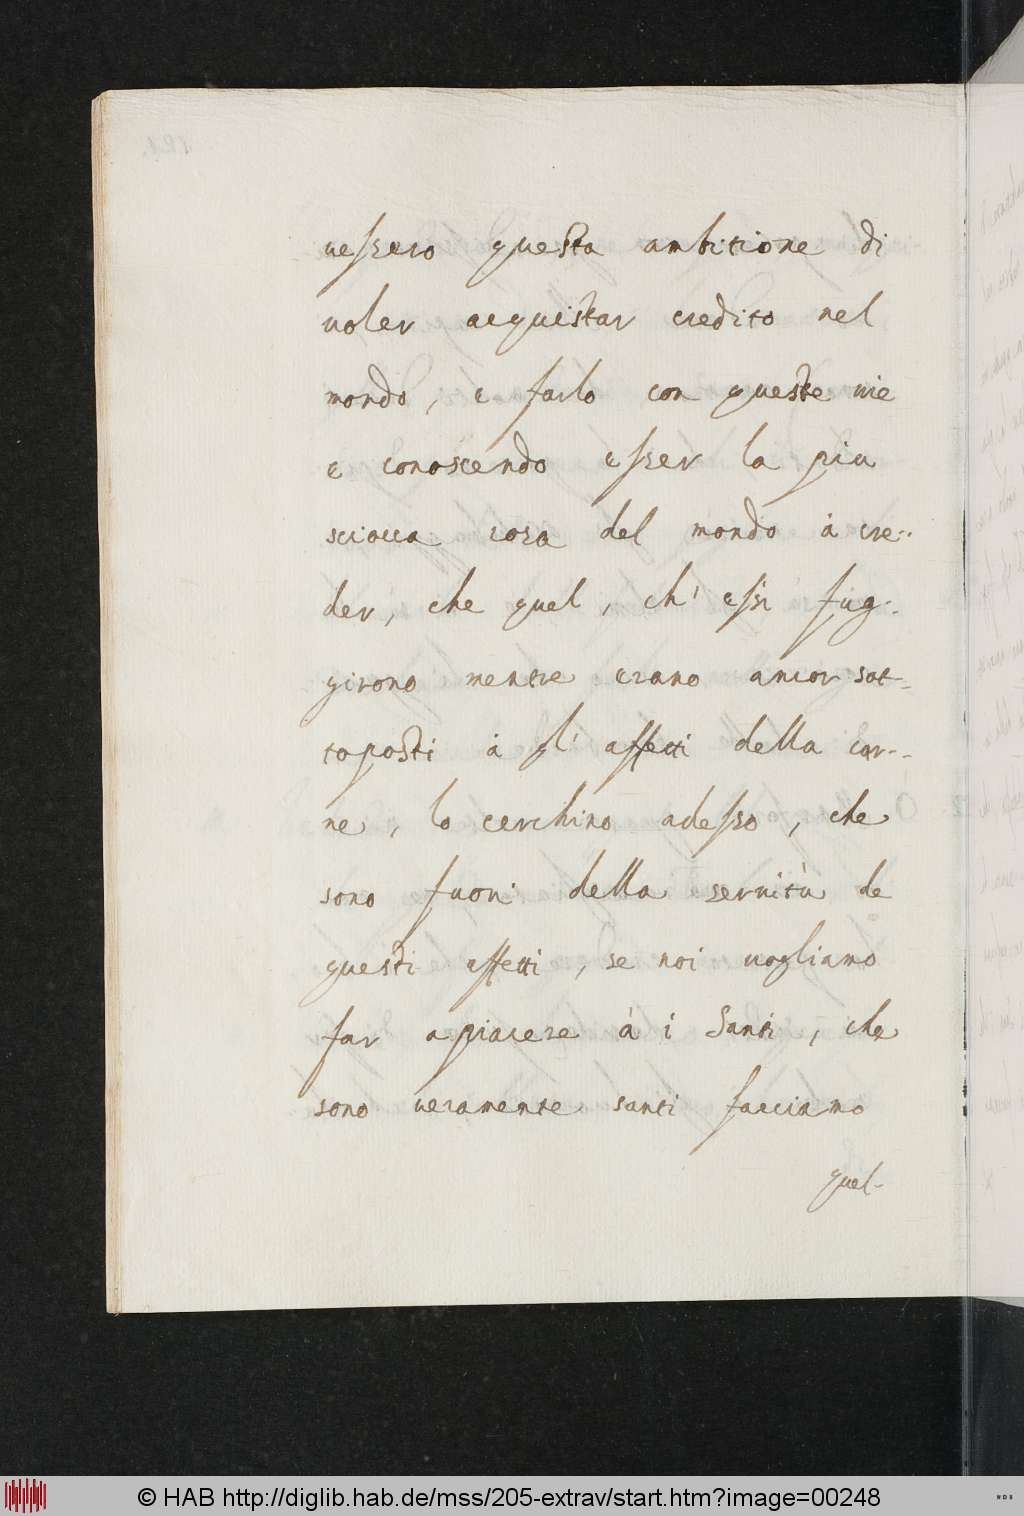 uessero questa ambitione di
uoler acquistar credito nel
mondo, e farlo con queste uie
e conoscendo esser la piu
sciocca cosa del mondo à cre-
der, che quel, ch' essi fug-
girono mentre erano ancor sot-
toposti à gl' affetti della car-
ne, lo cerchino adesso, che
sono fuori della seruitù de
questi affetti, se noi uogliamo
far apiacere à i Santi, che
sono ueramente santi facciamo
quel-
© HAB http://diglib.hab.de/mss/205-extrav/start.htm?image=00248